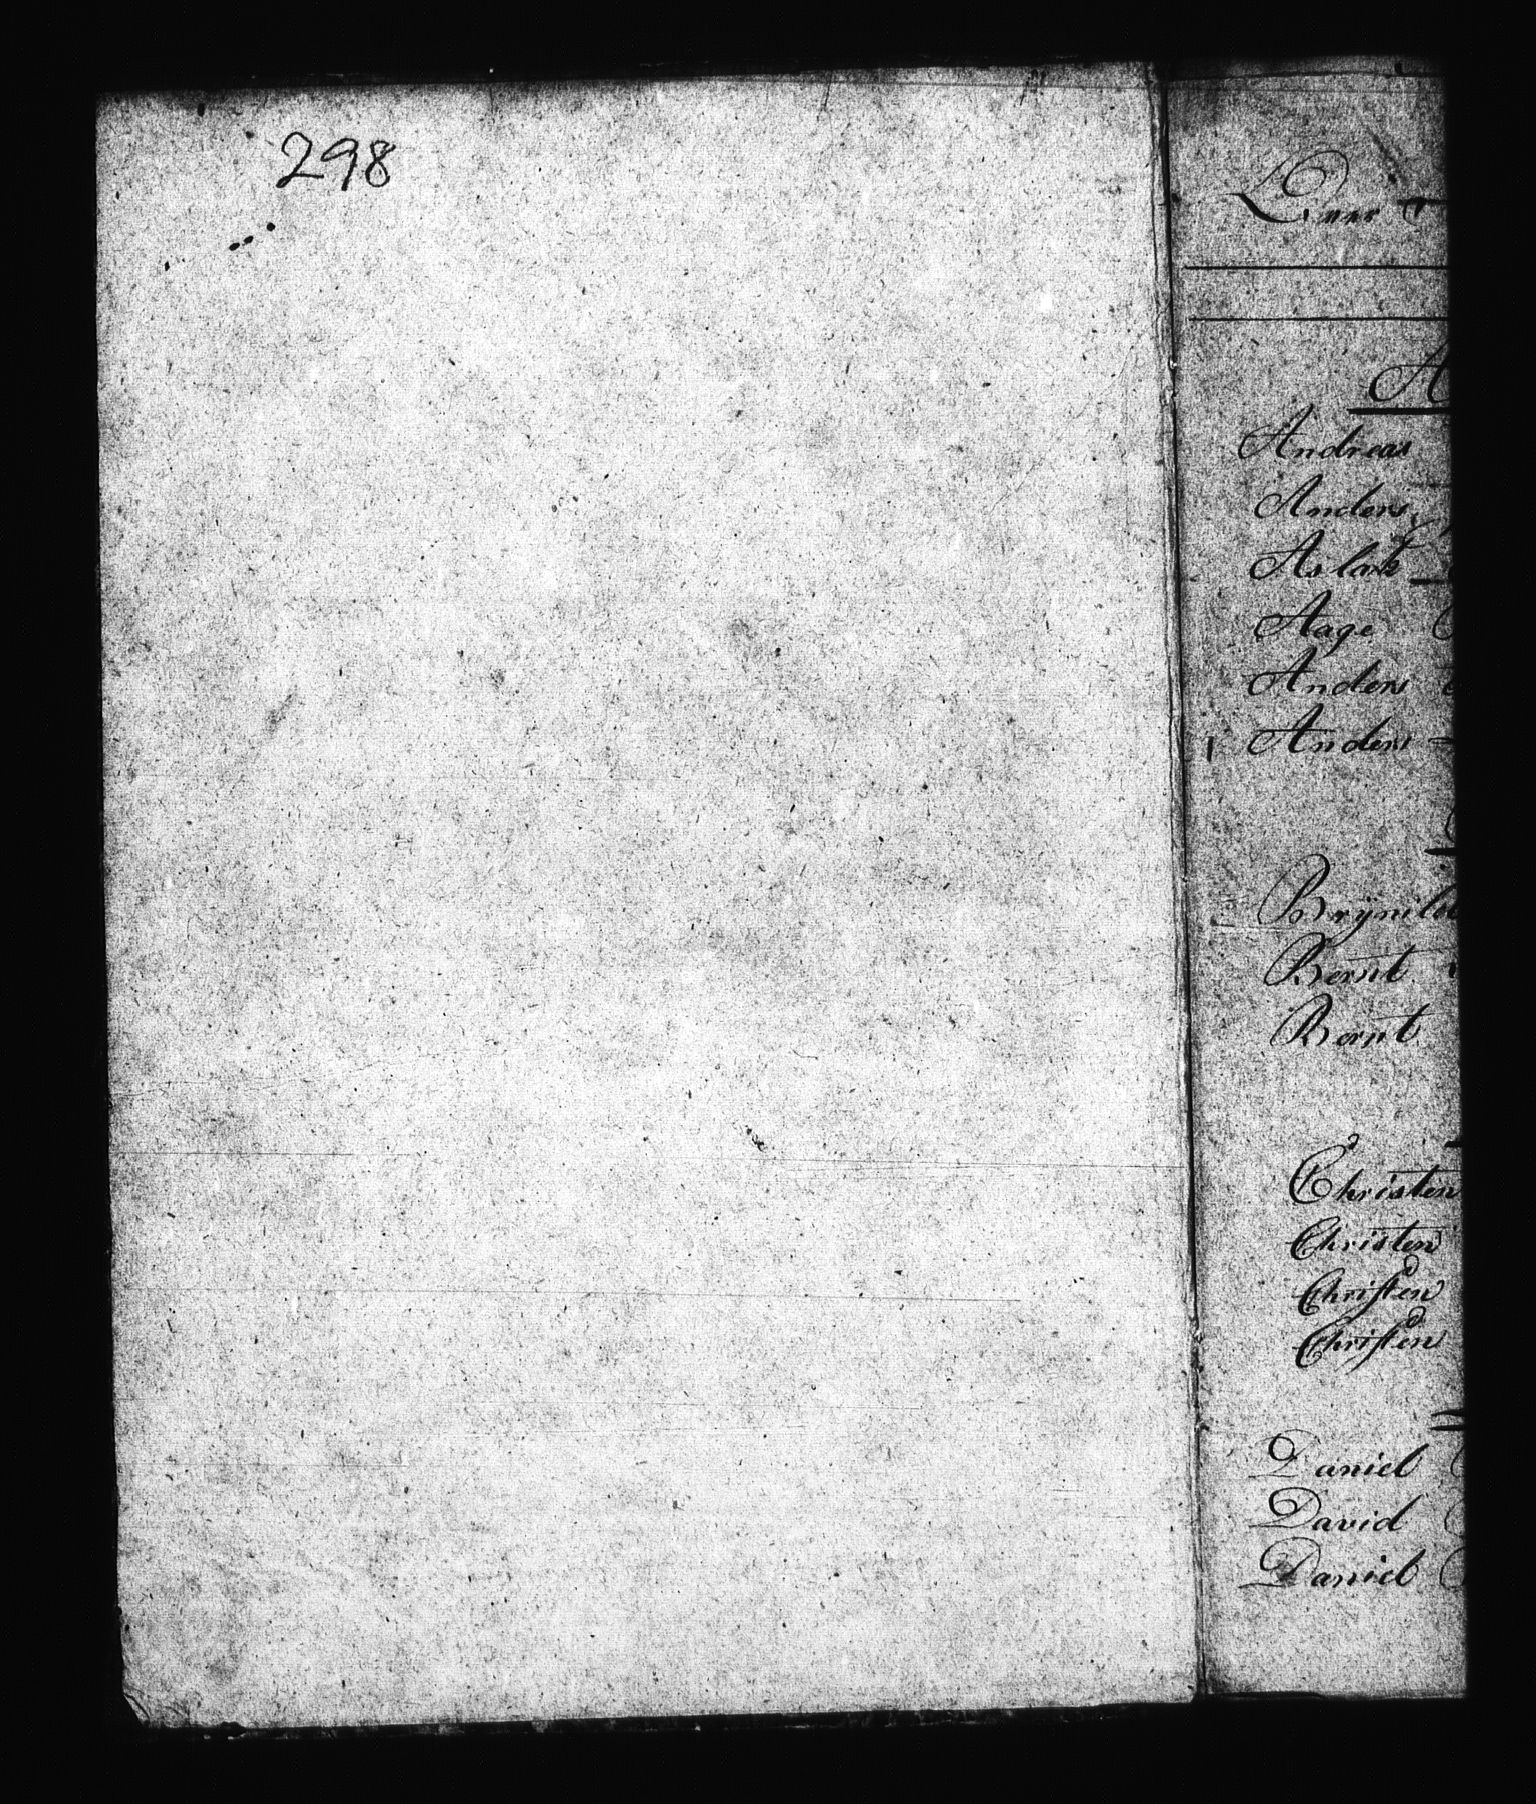 298
Over
A
Andreas
Anders
Aslak
Aage
Anders
Anders
Brÿnild
Bernt
Bernt
Christen
Christen
Christen
Christen
Daniel
David
Daniel